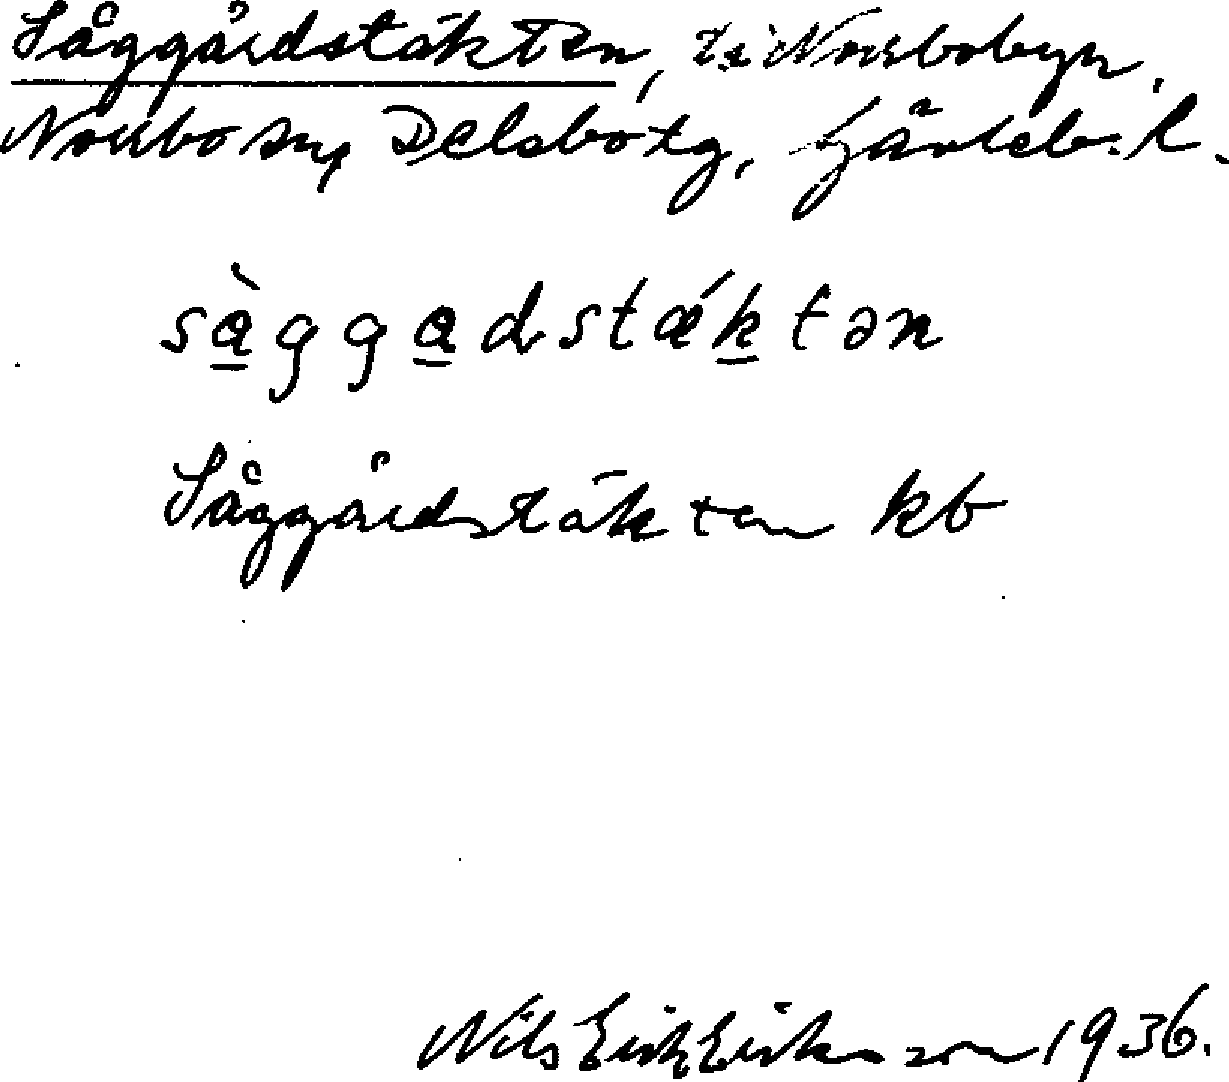 Såggårdstäkten, ts i Norrbobyn,
Norrbo sn, Delsbo tg, Gävleb. l.
sàggadstǽktən
Såggårdstäkten kb
Nils Erik Eriksson 1936.